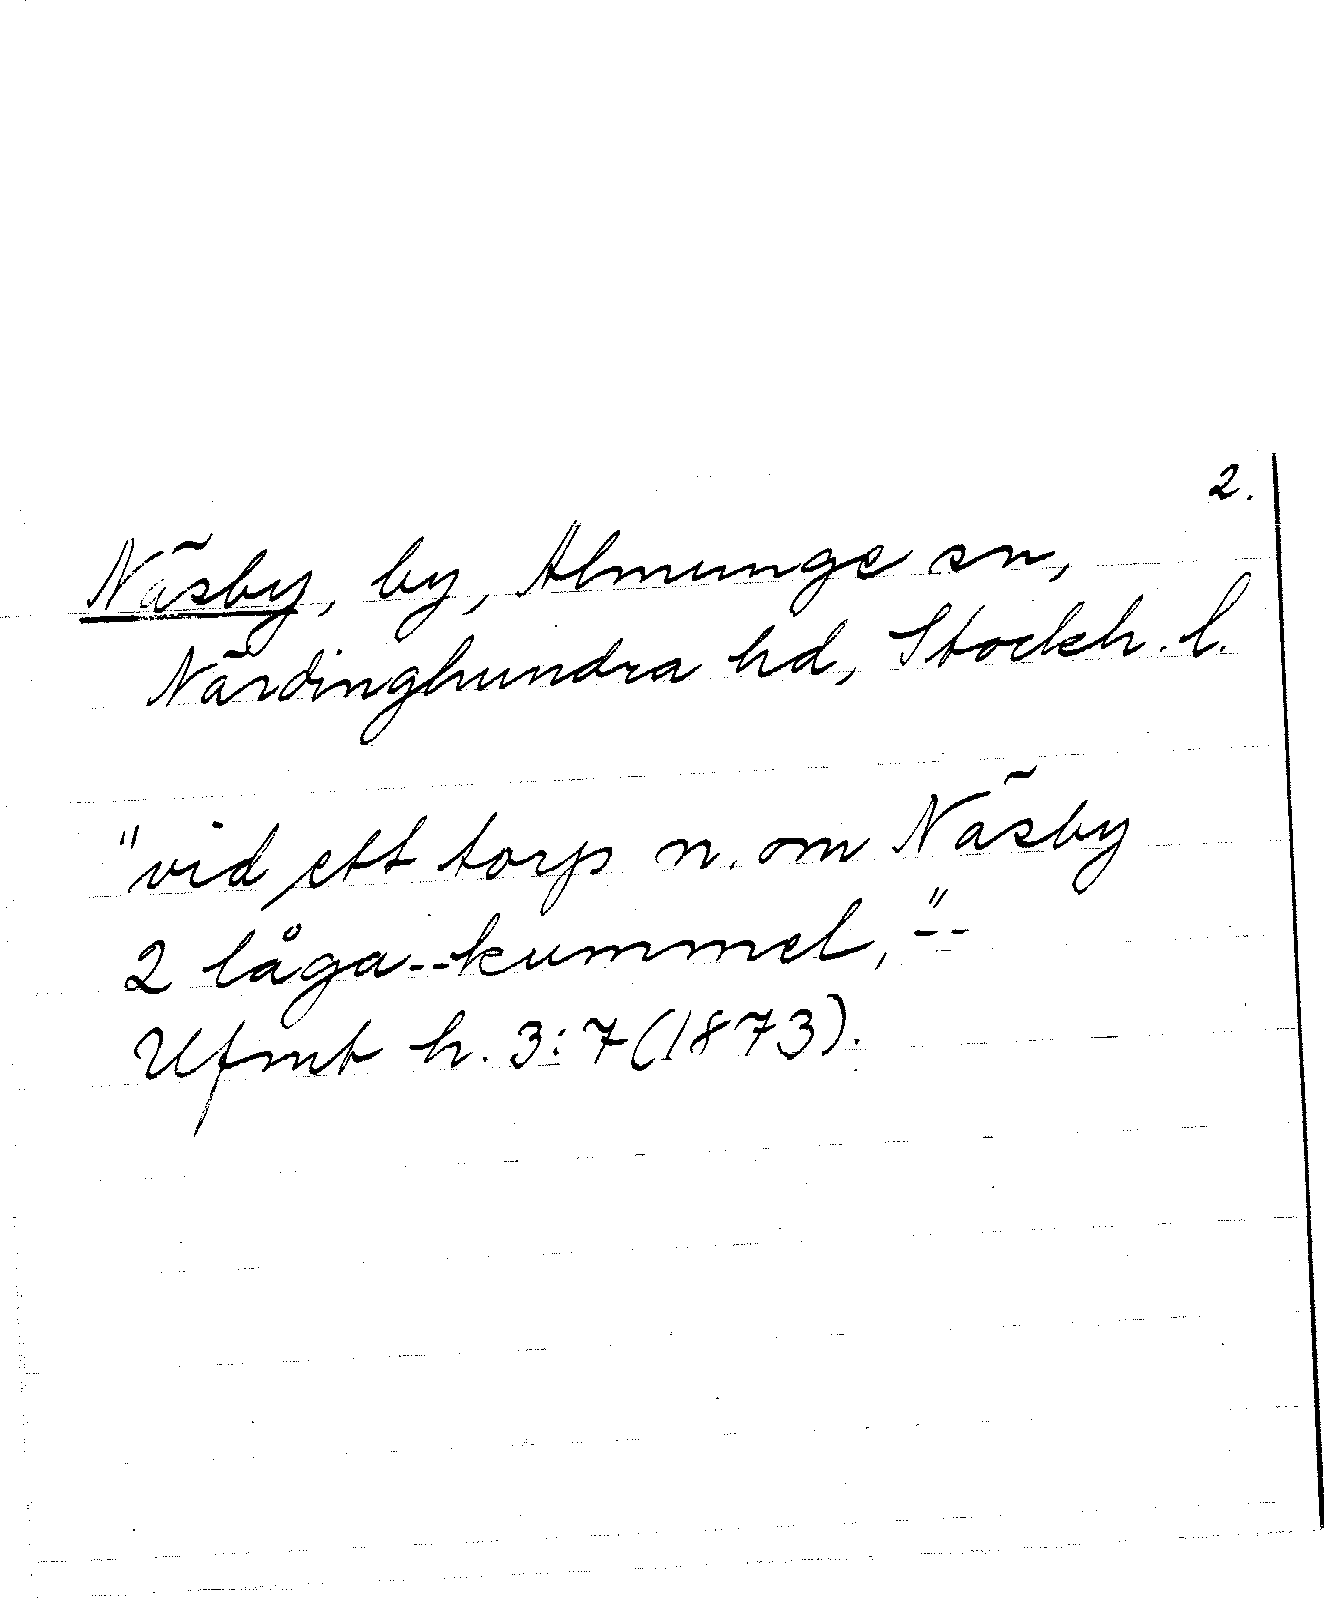 2.
Näsby, by, Almunge sn,
Närdinghundra hd, Stockh. l.
"vid ett torp n. om Näsby
2 låga--kummel,"--
Ufmt h. 3:7 (1873).